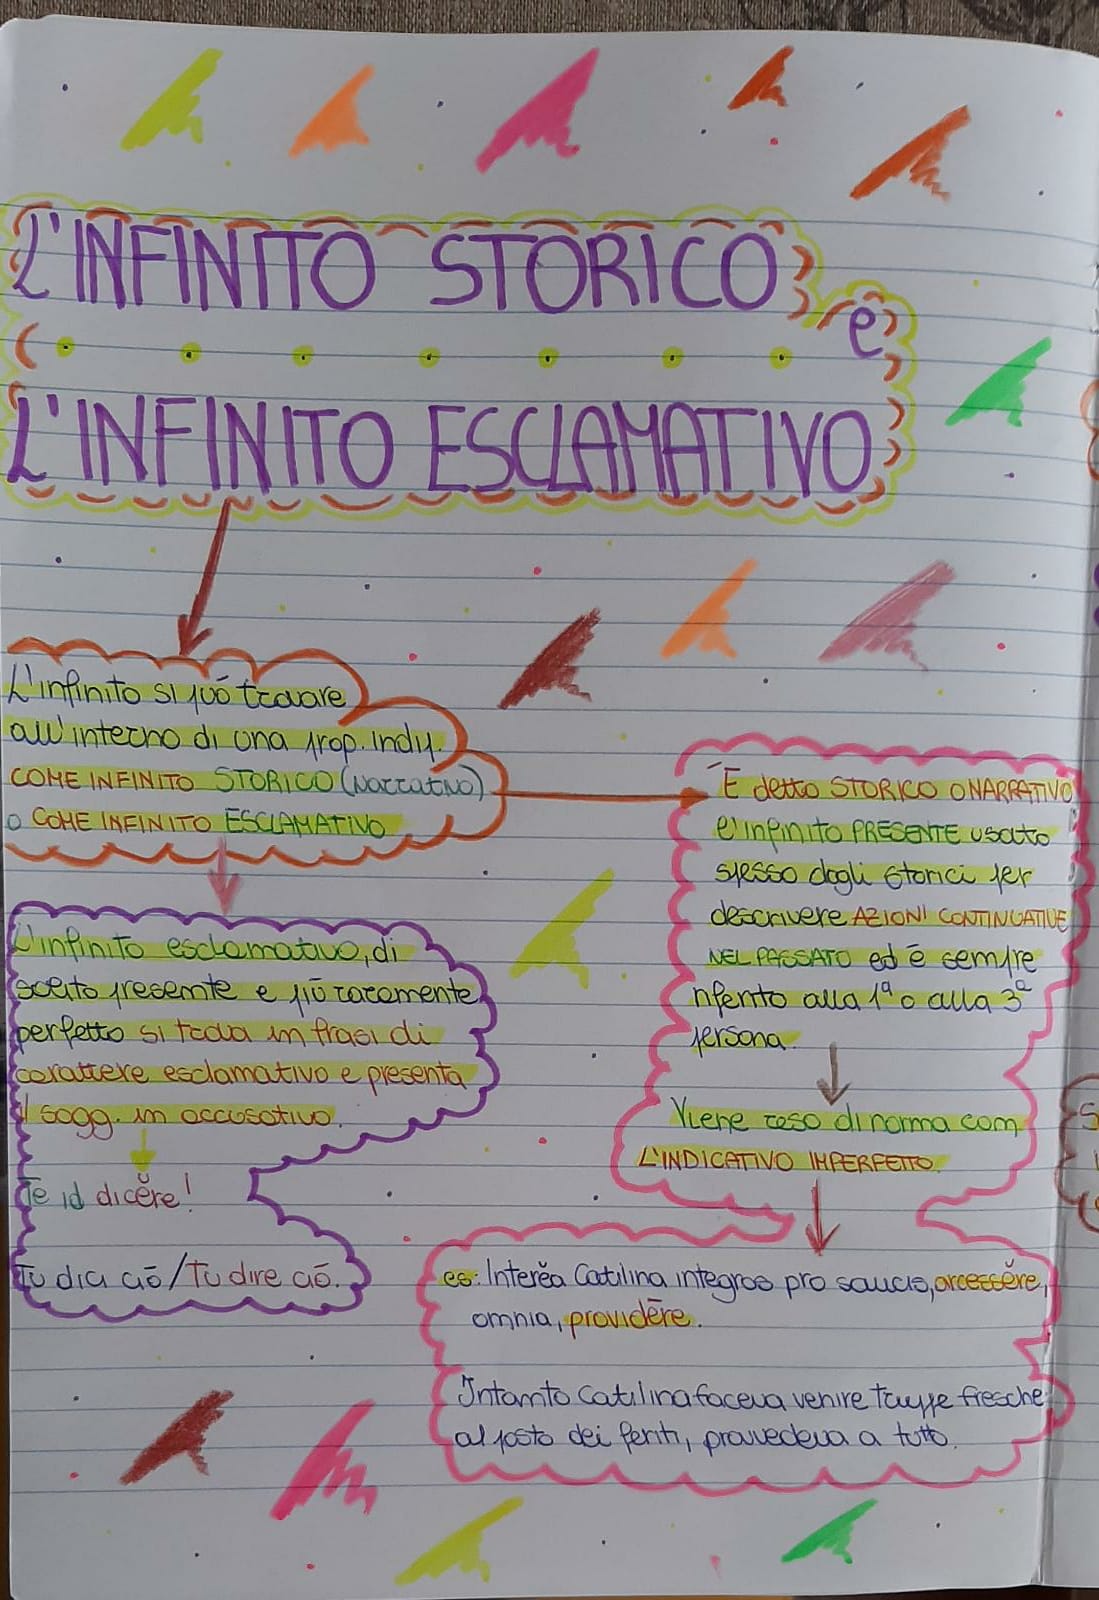 L'INFINITO STORICO
e
L'INFINITO ESCLAMATIVO
L'infinito si può trovare
all'interno di una prop. indip.
COME INFINITO STORICO (Narrativo)
o COME INFINITO ESCLAMATIVO
È detto STORICO O NARRATIVO
l'infinito PRESENTE usato
spesso dagli storici per
descrivere AZIONI CONTINUATIVE
NEL PASSATO ed è sempre
riferito alla 1ª o alla 3ª
persona.
Viene reso di norma com
L'INDICATIVO IMPERFETTO.
es: Interĕa Catilina integros pro saucis, arcessĕre,
omnia, providēre.
Intamto Catilina faceva venire truppe fresche
al posto dei feriti, provvedeva a tutto.
L'infinito esclamativo, di
solito presemte e più raramemte
perfetto si trova im frasi di
carattere esclamativo e presenta
il sogg. im accusativo.
Te id dicĕre!
Tu dici ciò/Tu dire ciò.